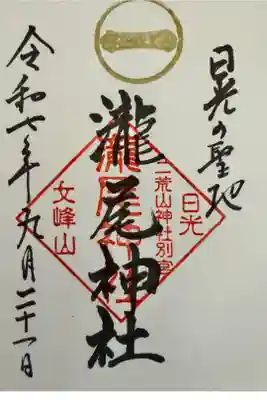 日光の聖地
瀧尾神社
令和七年九月二十一日
日光
二荒山神社別宮
女峰山